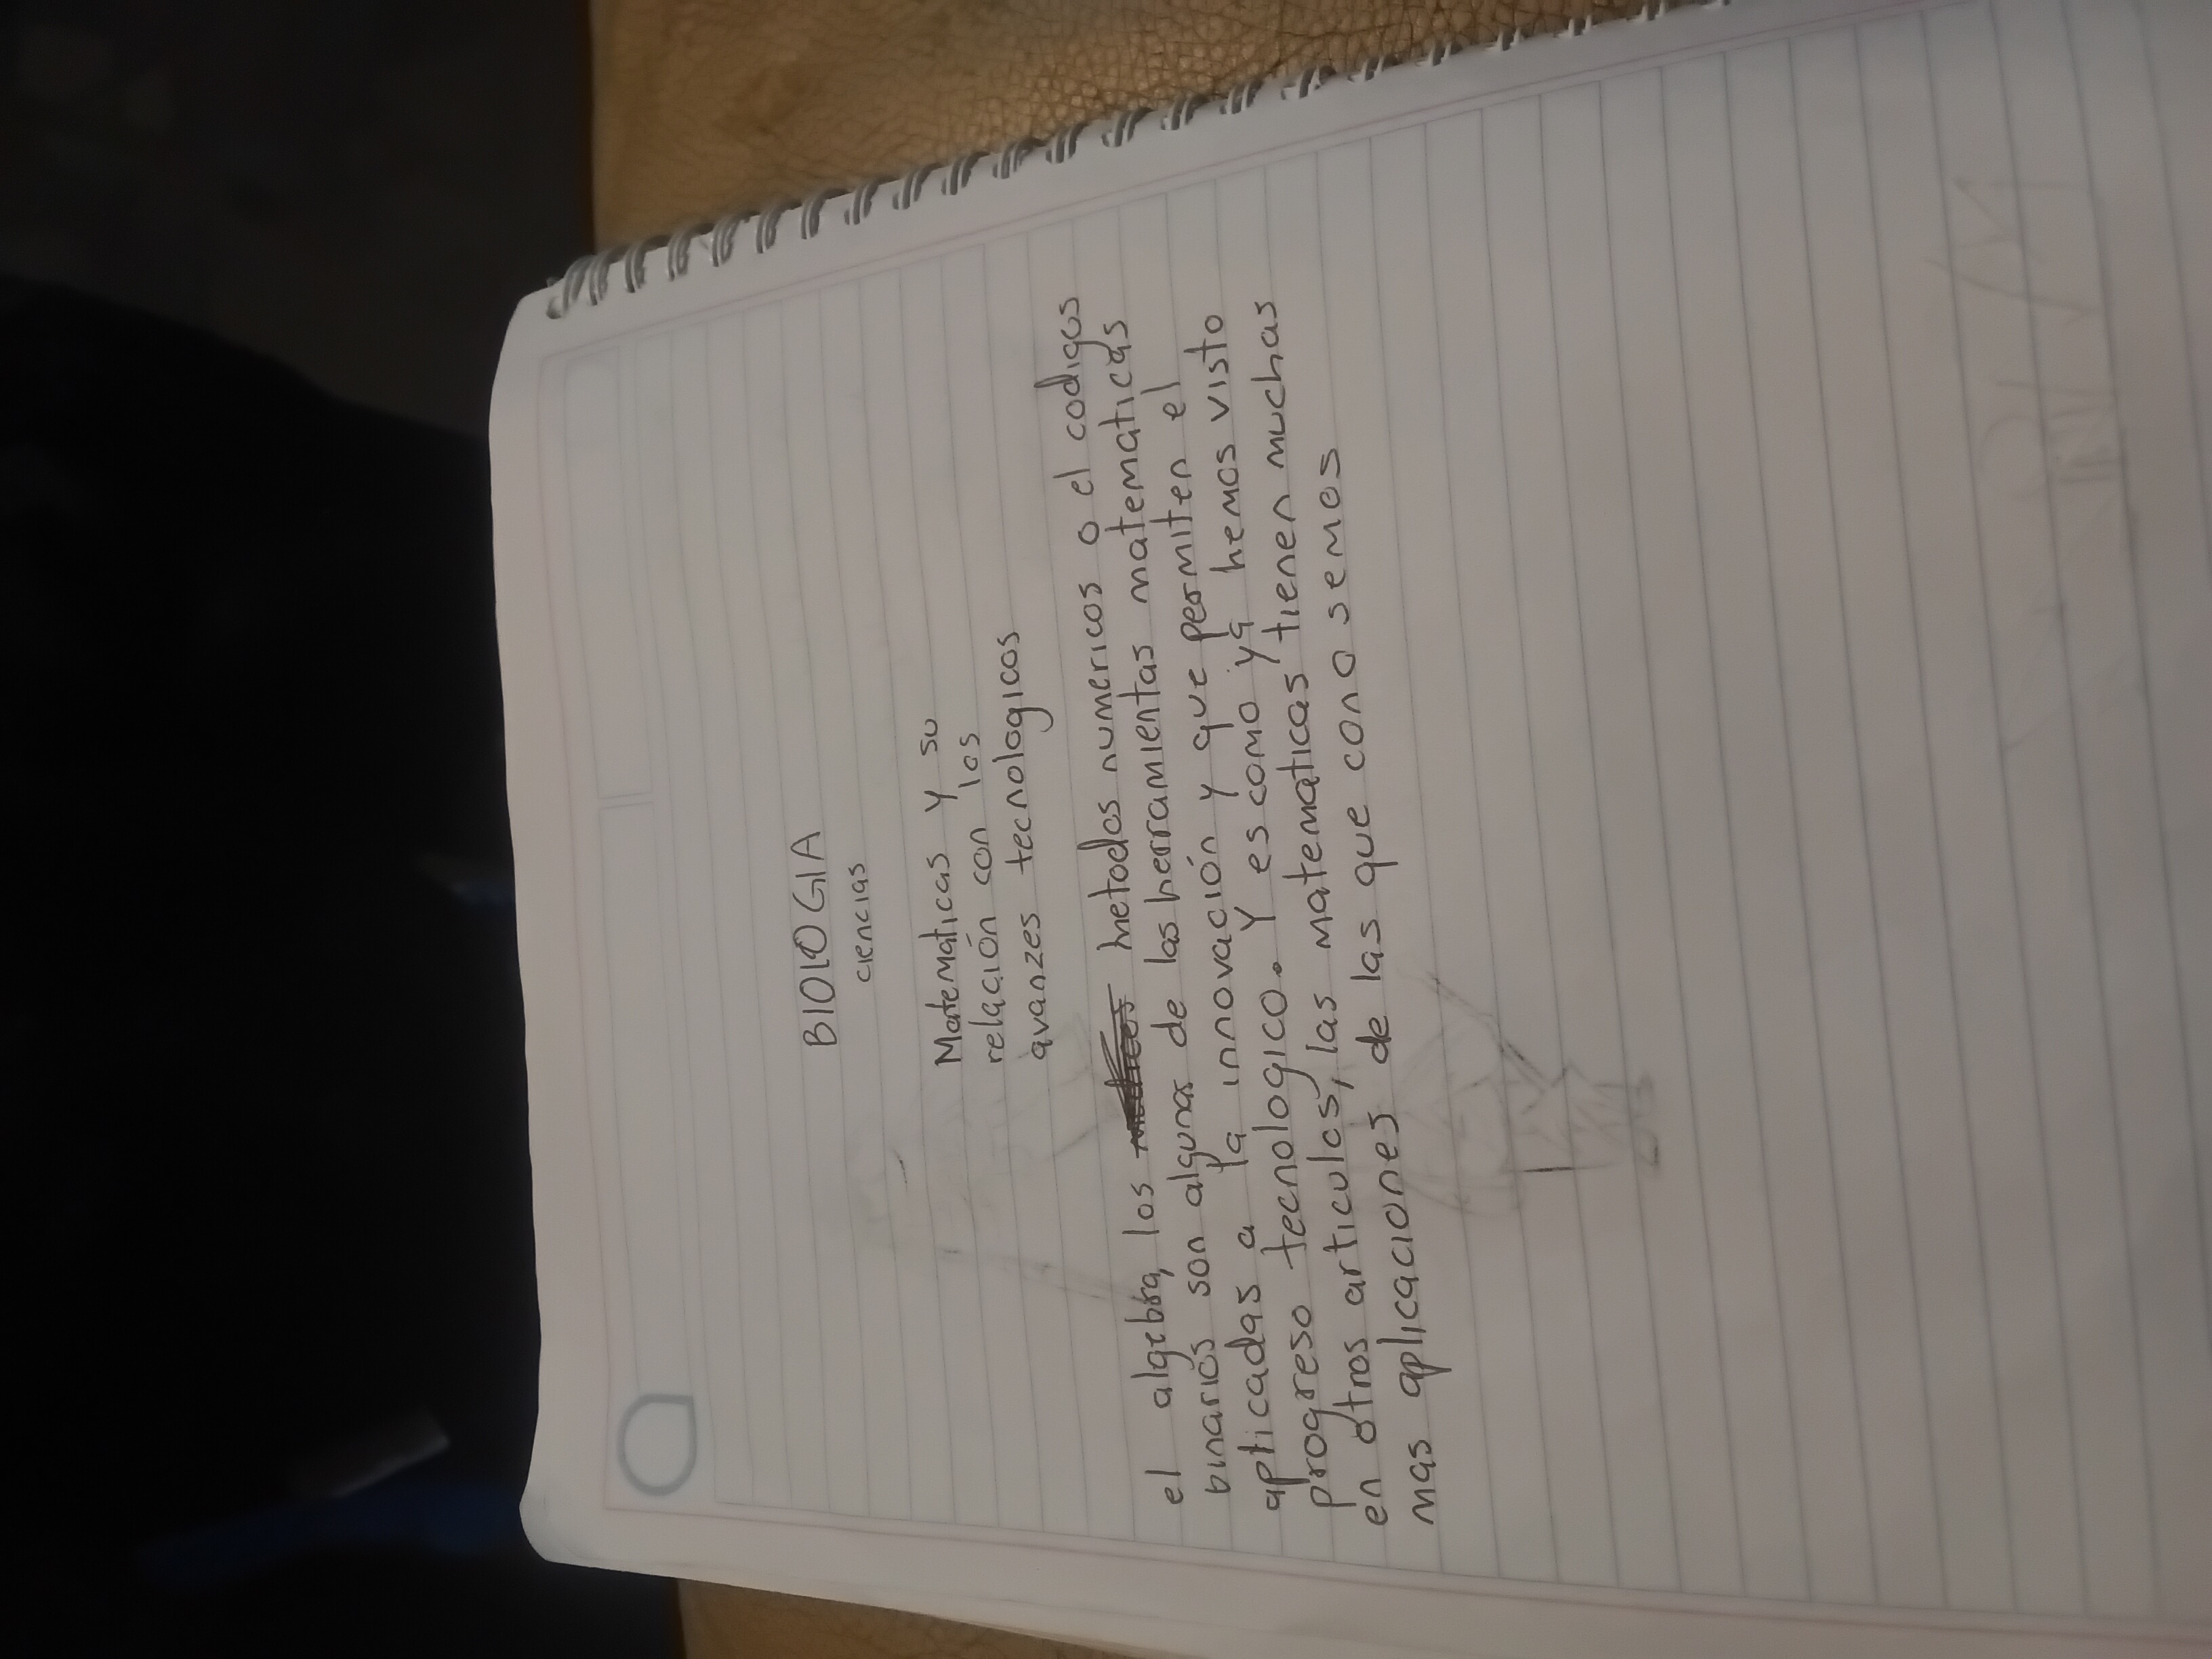 BIOLOGIA
ciencias
Matematicas y su
relación con los
avanzes tecnologicos
el algebra, los metodos numericos o el codigos
binarios son algunas de las herramientas matematicas
aplicadas a la innovación y que permiten el
progreso tecnologico. Y es como ya hemos visto
en otros articulos, las matematicas tienen muchas
mas aplicaciones de las que cono semos